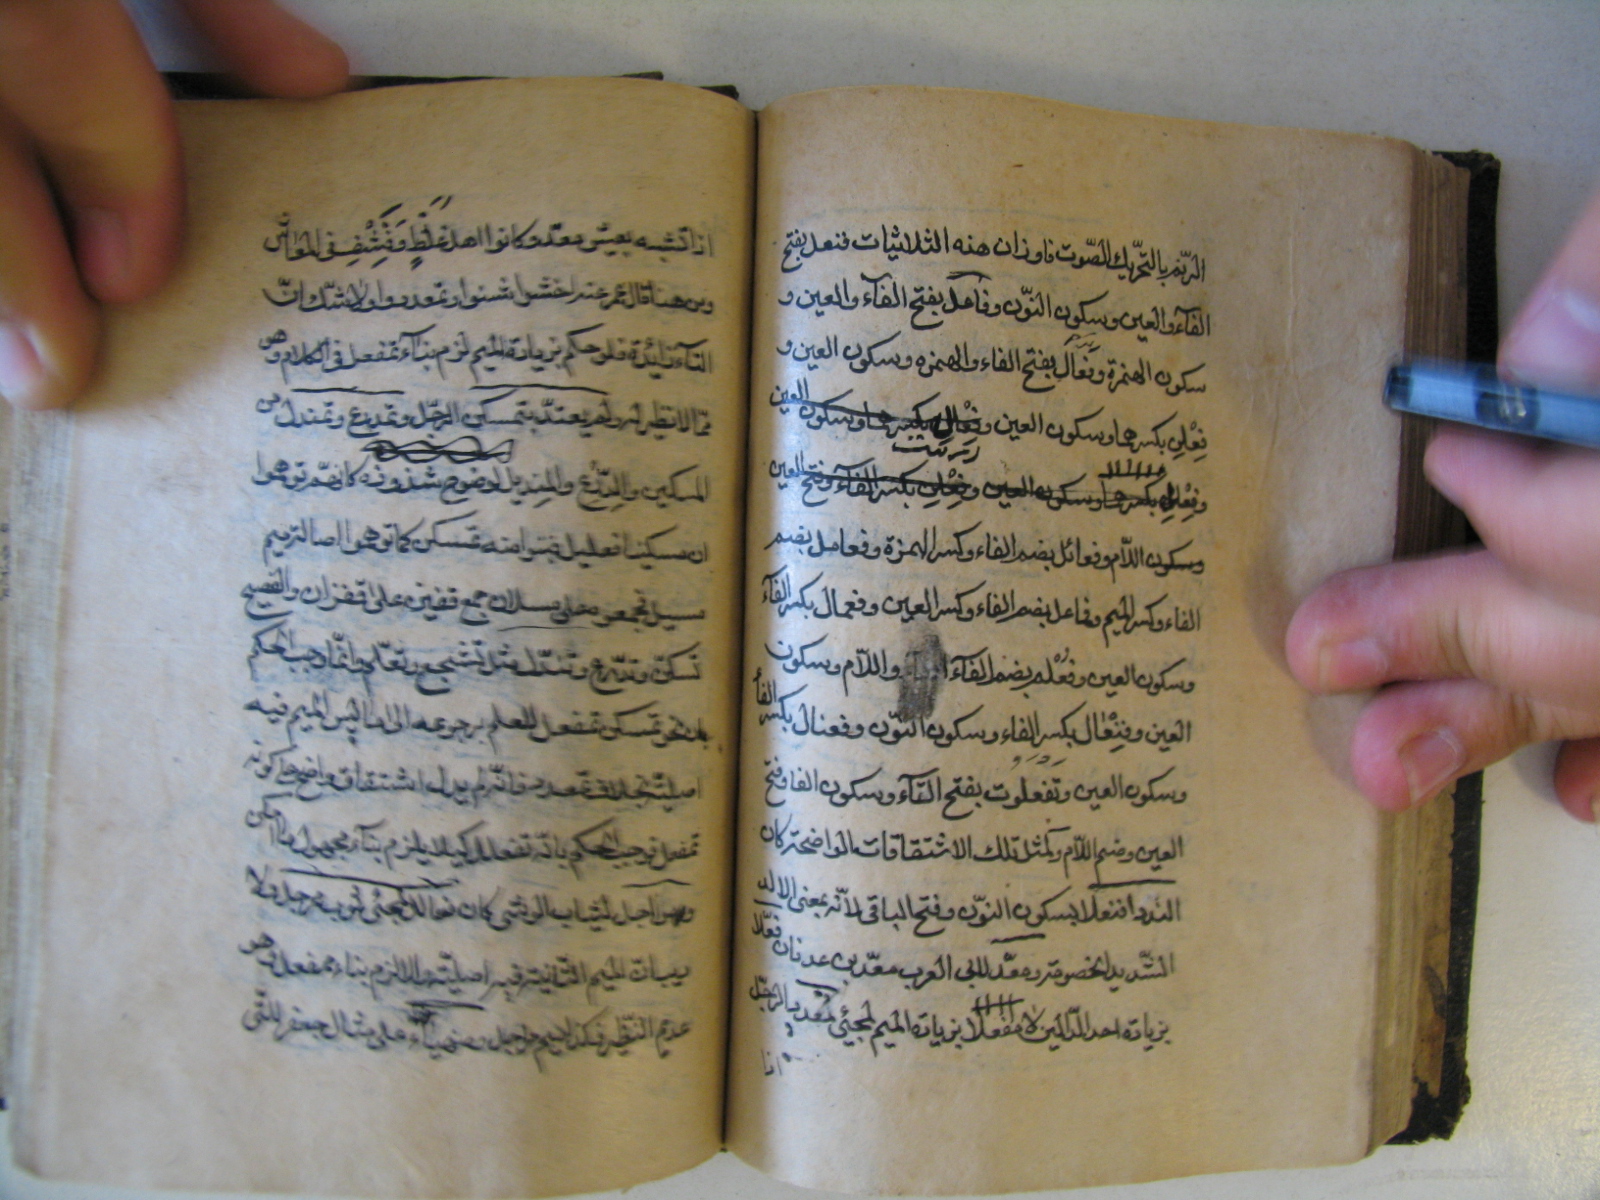 الترنم بالتحريك الصّوت فاوزان هذه الثلاثيات فنعل بفتح
الفآء والعين وسكون النّون وفأعل بفتح الفآء والعين و
سكون الهمزة وفَعْأل بفتح الفاء والهمزه وسكون العين و
فِعْلِن بكسرهما وسكون العين وفِعْال بكسرهما وسكون العين
وفِعْلِن بكسرهما وسكون العين وفِعْلِن بكسر الفآء وفتح العين
وسكون اللّام وفعائل بضم الفاء وكسر الهمزة وفعامل بضم
الفاء وكسر الميم وفاعل بضم الفاء وكسر العين وفعمال بكسر الفآء
وسكون العين وفُعْلُم بضم الفآء واللّام وسكون
العين وفِنِعْال بكسر الفاء وسكون النّون وفعنال بكسر الفأ
وسكون العين وتفعلوت بفتح التّآء وسكون الفا وفتح
العين وضم اللّام ولمثل تلك الاشتقاقات الواضحة كان
النددا فنعلا بسكون النّون وفتح الباقى لأنّه بمعنى الالد
الشّديد الخصومة ومعدّ لابي العرب معدّ بن عدنان فعلّا
بزيادة احد الدّالين لا مفعلًا بزيادة الميم لمجئ تمعدد الرّجل
اذا
اذا تشبه بعيش معدّ وكانوا اهل غِلَظٍ وقَشَفٍ فى المعاش
ومن هنا قال عمر اخشوشنوا وتمعددوا ولا شكّ انّ
التّاء زائدة فلو حكم بزيادة الميم لزم بناء تمفعل فى الكلام وهو
ممّا لا نظير له ولم يعتدّ بتمسكن الرّجل وتمدرع وتمندل من
المسكين والمِدْرع والمنديل لوضوح شذوذه كانّهم توهّموا
ان مسكينا فعليل فبنوا منه تمسكن كما توهموا اصالة ميم
مسيل فجمعوه على مسلان جمع قفيز على اقفزان والفصيح
تسكّن وتدرّع وتندّل مثل تشجّع وتعلّم وانّما وجب الحكم
بان نحو تمسكن تمفعل للعلم برجوعه الى ما ليس الميم فيه
اصلية بخلاف تمعدد فانّه لم يدل اشتقاق واضح على كونه
تمفعل فوجب الحكم بانّه تفعلل كيلا يلزم بناء مجهول
مراجل لثياب الوشى كان فعالل لمجئ ثوب ممرجل ولا
الميم الثّانية فيه اصليّة والّا لزم بناء ممفعل وهو
عديم النّظير فكذا ميم مراجل وضهيأء على مثال جعفر للّتى